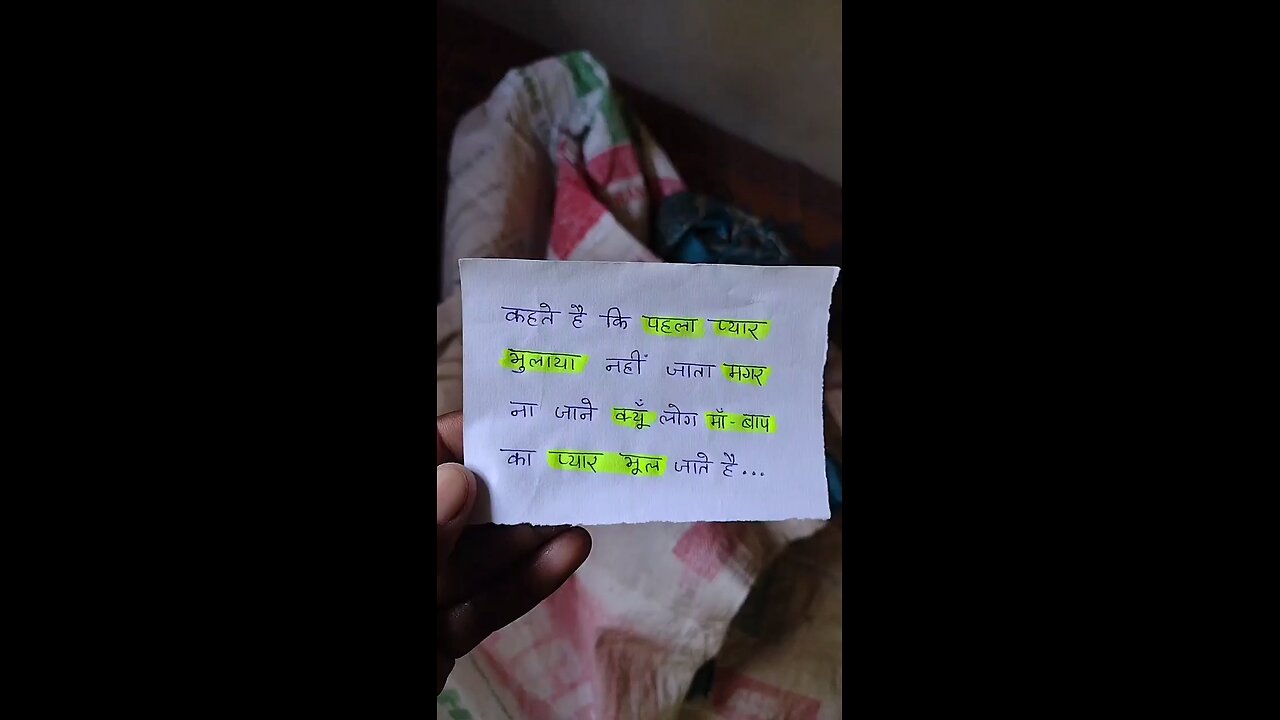 कहते है कि पहला प्यार
भुलाया नहीं जाता मगर
ना जाने क्यूँ लोग माँ-बाप
का प्यार भूल जाते है...